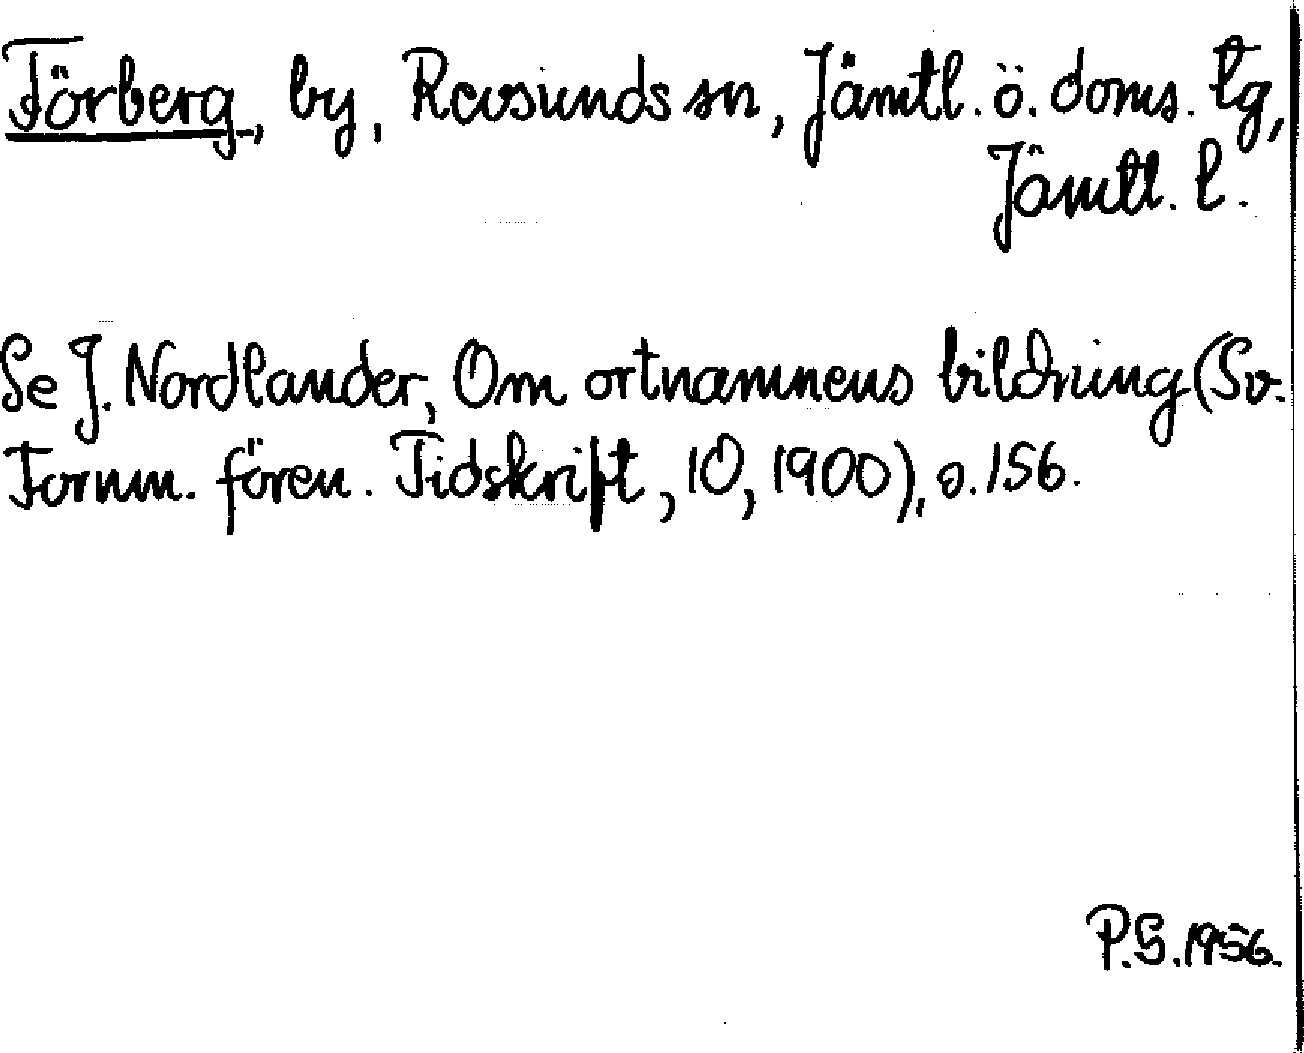 Förberg, by, Revsunds sn, Jämtl. ö. doms. tg,
Jämtl. l.
Se J. Nordlander, Om ortnamnens bildning (Sv.
Fornm. fören. Tidskrift, 10, 1900), s. 156.
P.S. 1956.